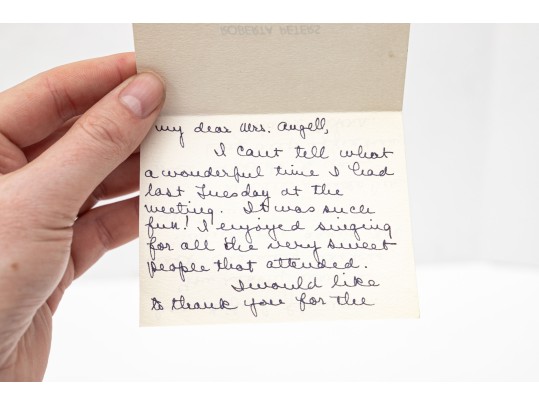 ROBERTA PETERS
My dear Mrs. Angell,
I can't tell what
a wonderful time I had
last Tuesday at the
meeting. It was such
fun! I enjoyed singing
for all the very sweet
people that attended.
I would like
to thank you for the